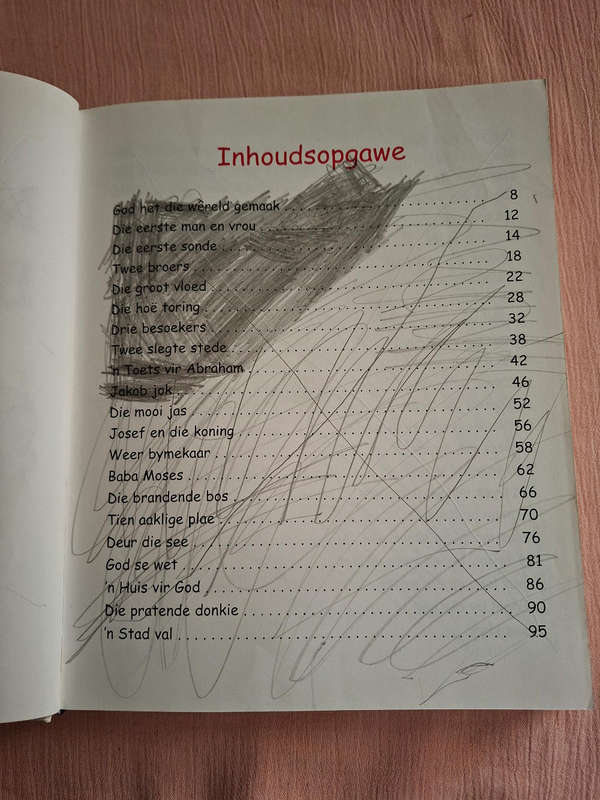 Inhoudsopgawe
God het die wêreld gemaak . . . . . . . . . . . . . . . . . . . . . . . . . 8
Die eerste man en vrou . . . . . . . . . . . . . . . . . . . . . . . . . . . . 12
Die eerste sonde . . . . . . . . . . . . . . . . . . . . . . . . . . . . . . . . . 14
Twee broers . . . . . . . . . . . . . . . . . . . . . . . . . . . . . . . . . . . . 18
Die groot vloed . . . . . . . . . . . . . . . . . . . . . . . . . . . . . . . . . . 22
Die hoë toring . . . . . . . . . . . . . . . . . . . . . . . . . . . . . . . . . . . 28
Drie besoekers . . . . . . . . . . . . . . . . . . . . . . . . . . . . . . . . . . 32
Twee slegte stede . . . . . . . . . . . . . . . . . . . . . . . . . . . . . . . . 38
'n Toets vir Abraham . . . . . . . . . . . . . . . . . . . . . . . . . . . . . . 42
Jakob jok . . . . . . . . . . . . . . . . . . . . . . . . . . . . . . . . . . . . . . 46
Die mooi jas . . . . . . . . . . . . . . . . . . . . . . . . . . . . . . . . . . . . 52
Josef en die koning . . . . . . . . . . . . . . . . . . . . . . . . . . . . . . . 56
Weer bymekaar . . . . . . . . . . . . . . . . . . . . . . . . . . . . . . . . . . 58
Baba Moses . . . . . . . . . . . . . . . . . . . . . . . . . . . . . . . . . . . . . 62
Die brandende bos . . . . . . . . . . . . . . . . . . . . . . . . . . . . . . . . 66
Tien aaklige plae . . . . . . . . . . . . . . . . . . . . . . . . . . . . . . . . . 70
Deur die see . . . . . . . . . . . . . . . . . . . . . . . . . . . . . . . . . . . . 76
God se wet . . . . . . . . . . . . . . . . . . . . . . . . . . . . . . . . . . . . . 81
'n Huis vir God . . . . . . . . . . . . . . . . . . . . . . . . . . . . . . . . . . 86
Die pratende donkie . . . . . . . . . . . . . . . . . . . . . . . . . . . . . . 90
'n Stad val . . . . . . . . . . . . . . . . . . . . . . . . . . . . . . . . . . . . . 95